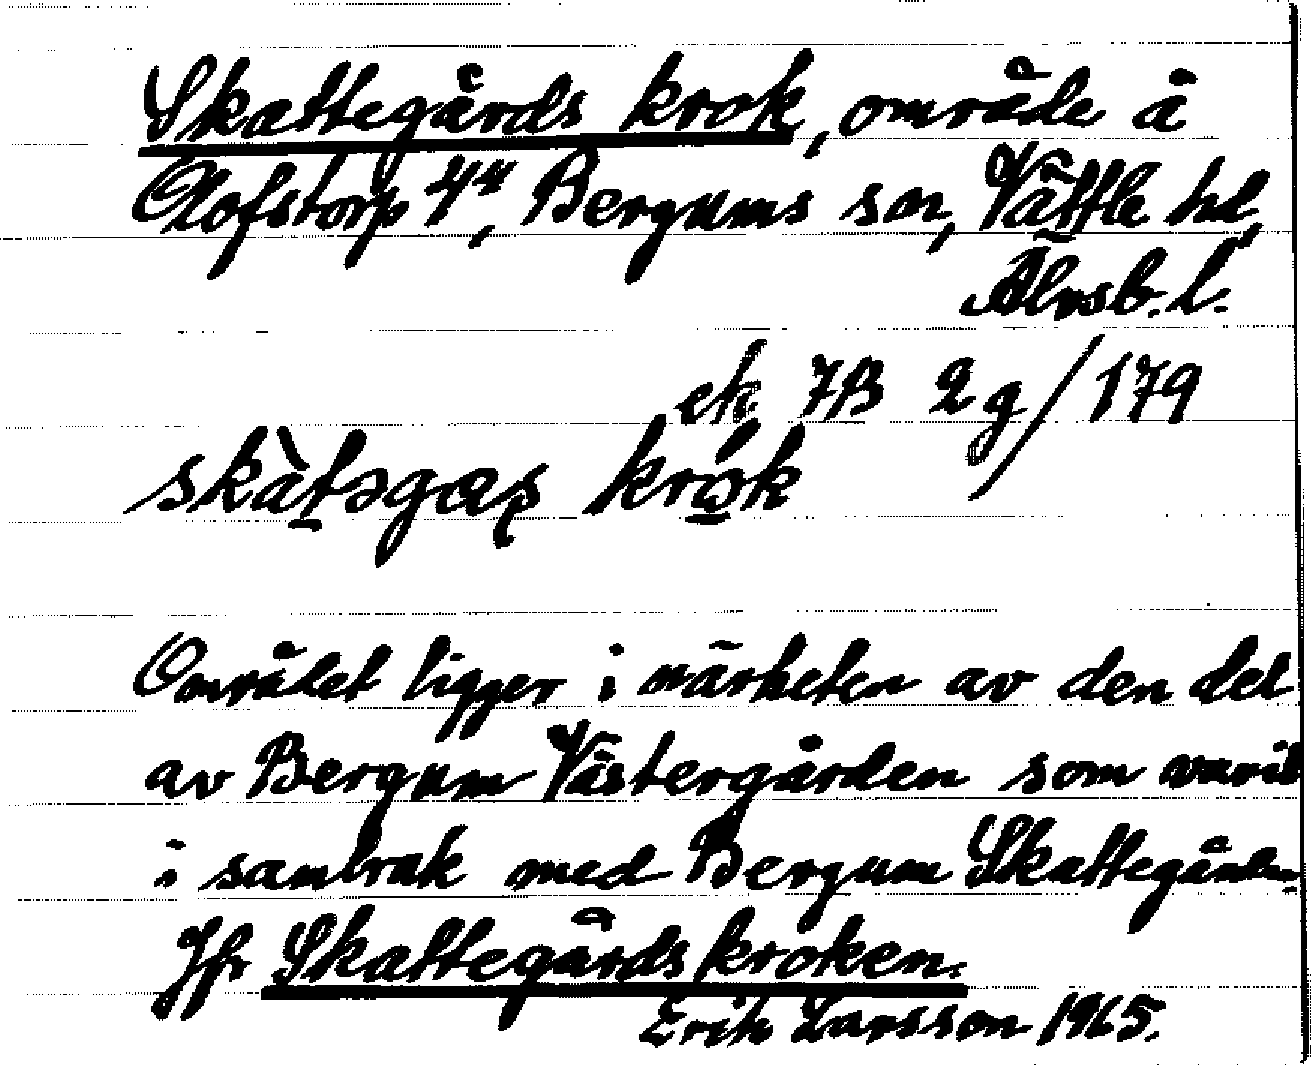 Skattegårds krok, område å
Olofstorp 4⁴, Bergums sn, Vättle hd,
Älvsb. l.
ek 7B 2g/179
skàtəgaʂ krók
Området ligger i närheten av den del
av Bergum Västergården som varit
i sambruk med Bergum Skattegården.
Jfr Skattegårdskroken.
Erik Larsson 1965.